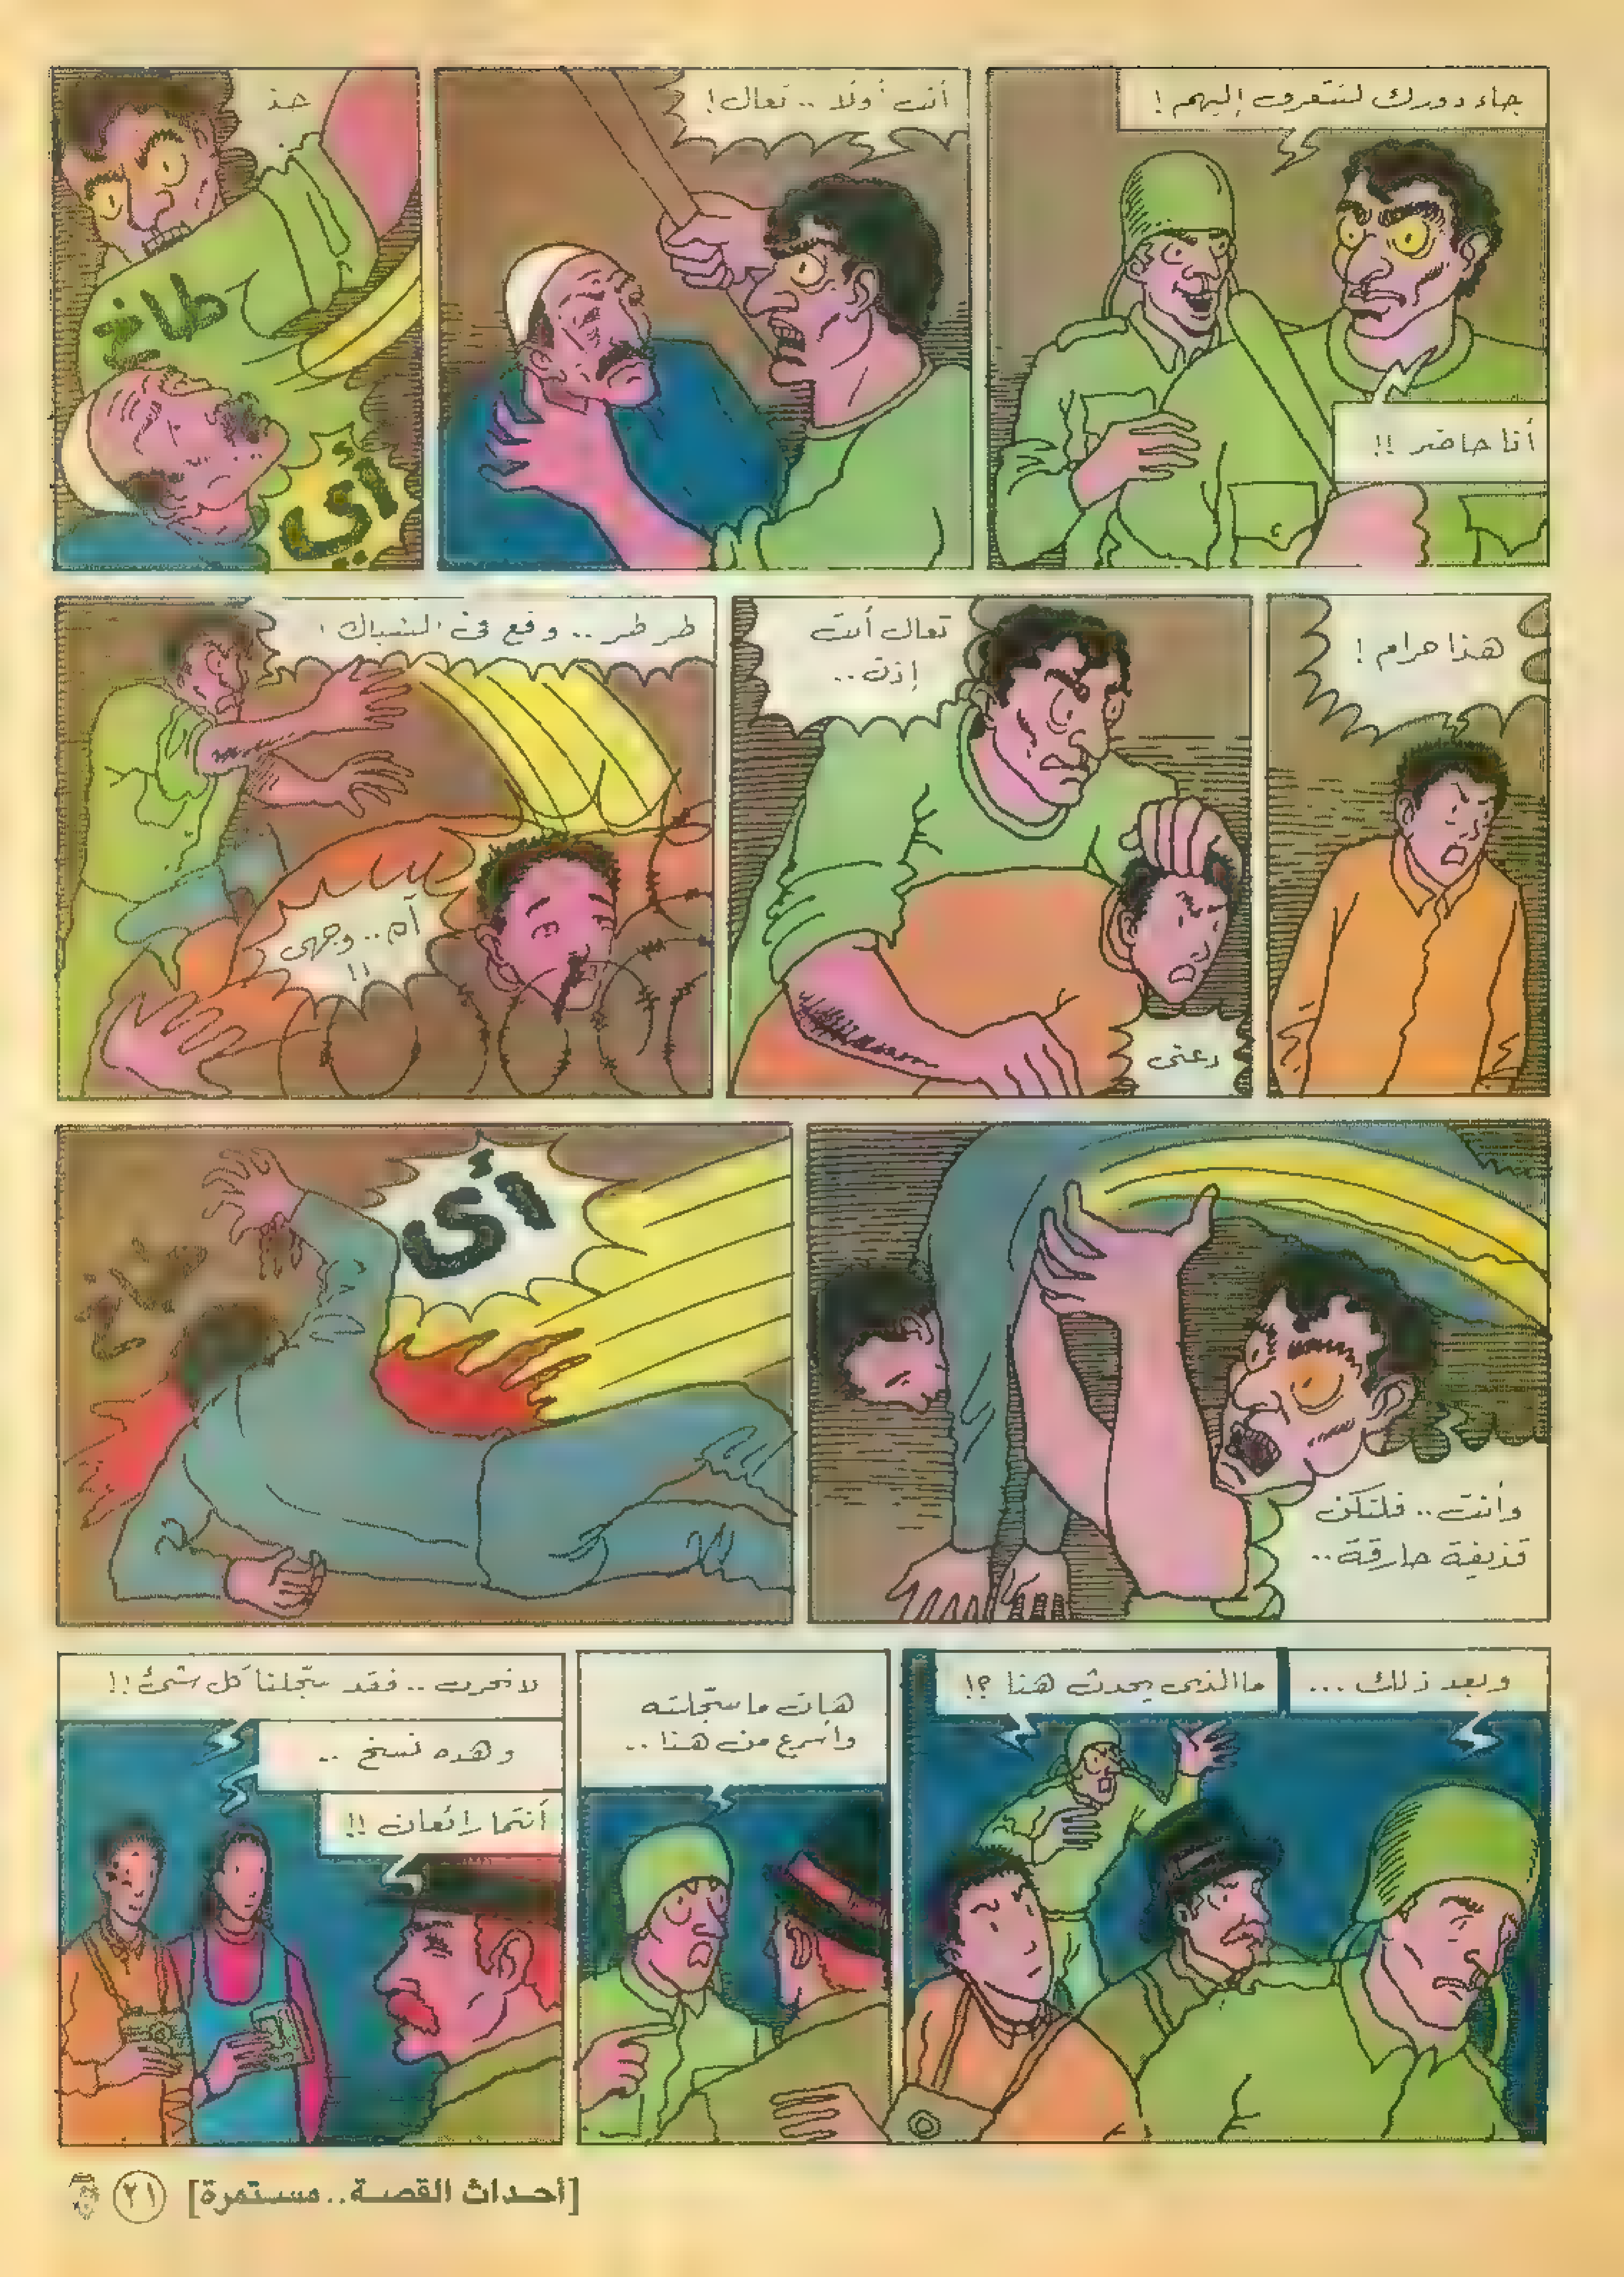 جاء دورك لتتعرف إليهم !
أنا حاضر !!
أنت أولا .. تعال !
خذ
طاخ
أي
هذا حرام !
تعال أنت
إذن ..
دعنى
طر طر .. وقع فى الشباك !
آه .. وجهى
!!
وأنت .. فلتكن
قذيفة حارقة ..
أى
وبعد ذلك ...
ما الذى يحدث هنا ؟!
هات ما سجّلته
وأسرع من هنا ..
لا تحزن .. فقد سجّلنا كل شئ !!
وهذه نسخ ..
أنتما رائعان !!
[أحداث القصة .. مستمرة]
٢١